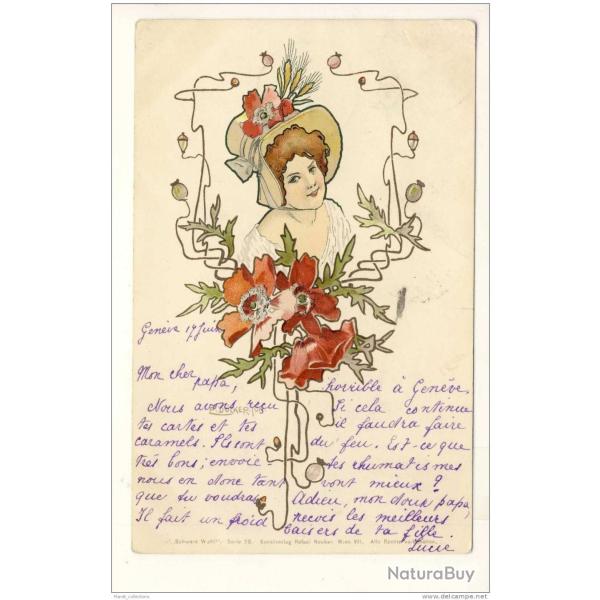 Genève 17 Juin
Mon cher papa,
Nous avons reçu
tes cartes et tes
caramels. Ils sont
très bons; envoie-
nous en donc tant
que tu voudras.
Il fait un froid
horrible à Genève.
Si cela continue
il faudra faire
du feu. Est-ce que
tes rhumatismes
vont mieux?
Adieu, mon doux papa,
reçois les meilleurs
baisers de ta fille.
Lucie
DÖCKER
"Schwere Wahl". Serie 78. Kunstverlag Rafael Neuber, Wien VII.
NaturaBuy
Hardi_collections
www.delcampe.net